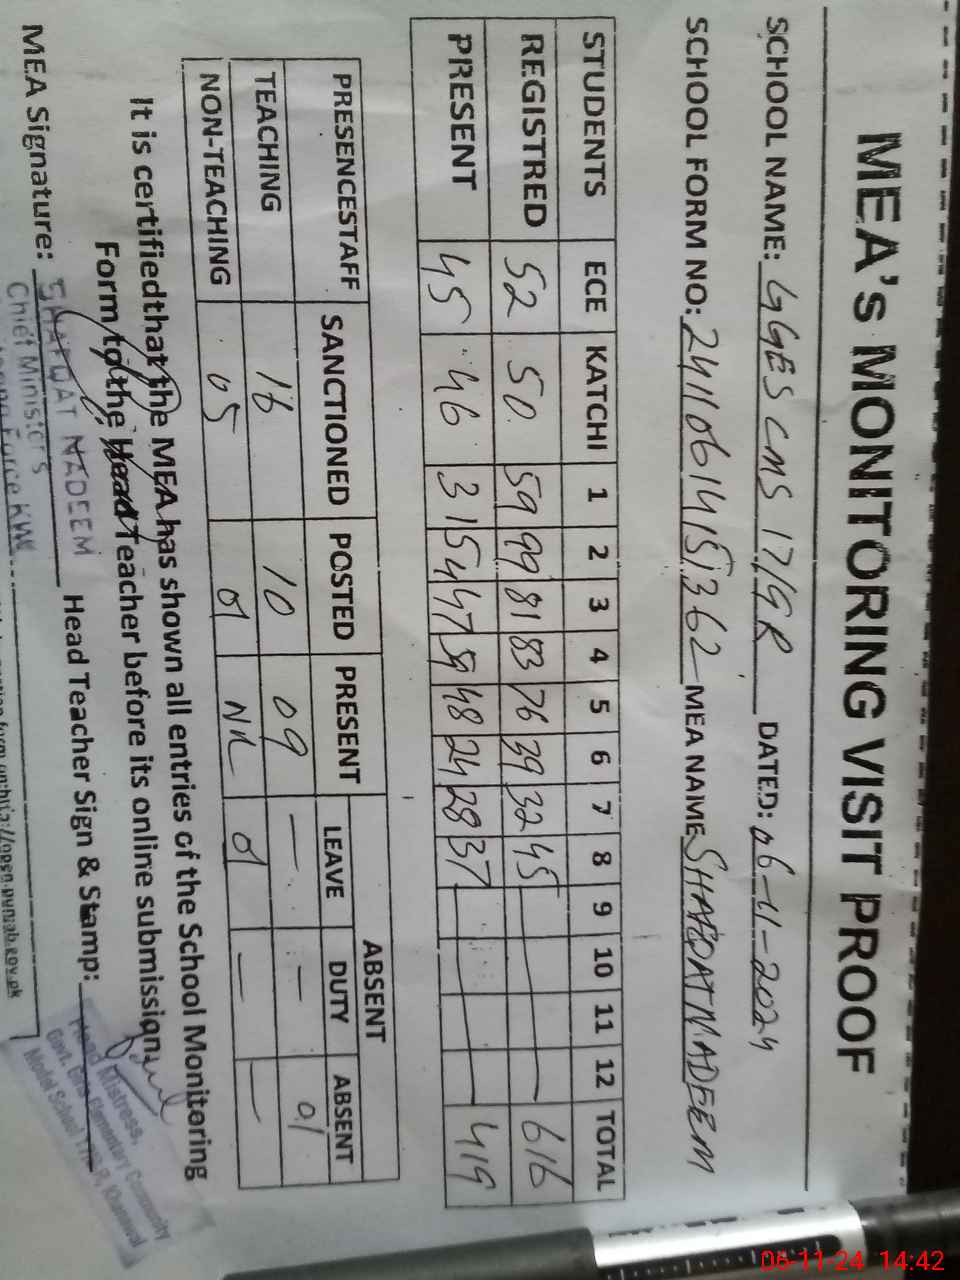 MEA's MONITORING VISIT PROOF
SCHOOL NAME: GGES CMS 17/9R DATED: 06-11-2024
SCHOOL FORM NO: 24110614151362 MEA NAME SHAFQAT NADEEM
STUDENTS ECE KATCHI 1 2 3 4 5 6 7 8 9 10 11 12 TOTAL
REGISTRED 52 50 59 99 81 83 76 39 32 45 616
PRESENT 45 46 31 54 47 59 48 24 28 37 419
PRESENCESTAFF SANCTIONED POSTED PRESENT ABSENT
LEAVE DUTY ABSENT
TEACHING 16 10 09 — — 01
NON-TEACHING 05 01 NIL 01 — —
It is certifiedthat the MEA has shown all entries of the School Monitoring
Form to the Head Teacher before its online submission.
MEA Signature: Head Teacher Sign & Stamp:
SHAFQAT NADEEM
Chief Minister's
Force KWL
Head Mistress,
Govt. Girls Elementary Community
Model School 17/9-R, Khanewal
06-11-24 14:42